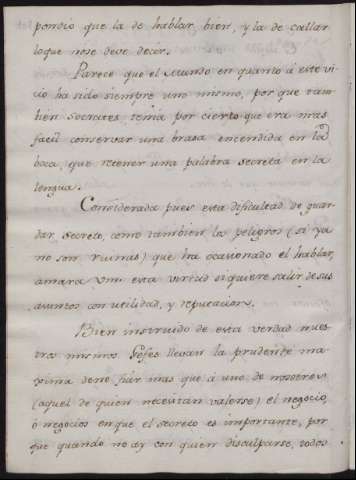 pondio que la de hablar bien, y la de callar
loque nose deve decir.
Parece que el Mundo en quanto á este vi
cio ha sido siempre uno mismo, por que tam
bien Socrates tenia por cierto que era mas
facil conservar una brasa encendida en la
boca, que retener una palabra secreta en la
lengua.
Considerada pues esta dificultad de guar
dar secreto, como tambien los peligros (si ya
no son ruinas) que ha ocasionado el hablar,
amara Vm. esta virtud si quiere salir de sus
asuntos con utilidad, y reputacion.
Bien instruido de esta verdad nues
tros mismos Gefes llevan la prudente ma
xima de no fiar mas que á uno de nosotros
(aquel de quien necesitan valerse) el negocio,
ó negocios en que el secreto es importante, por
que quando no ay con quien disculparse, todos